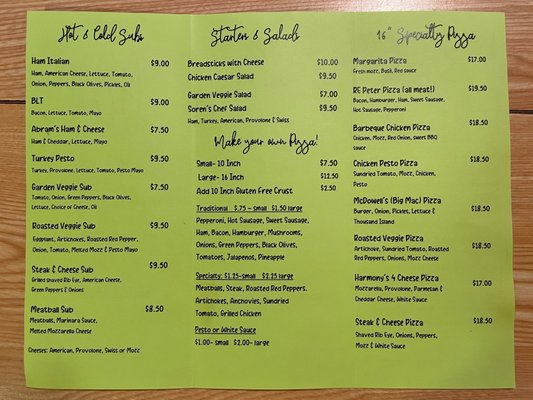 Hot & Cold Subs
Ham Italian $9.00
Ham, American Cheese, Lettuce, Tomato,
Onion, Peppers, Black Olives, Pickles, Oil
BLT $9.00
Bacon, Lettuce, Tomato, Mayo
Abram's Ham & Cheese $7.50
Ham & Cheddar, Lettuce, Mayo
Turkey Pesto $9.50
Turkey, Provolone, Lettuce, Tomato, Pesto Mayo
Garden Veggie Sub $7.50
Tomato, Onion, Green Peppers, Black Olives,
Lettuce, Choice of Cheese, Oil
Roasted Veggie Sub $9.50
Eggplant, Artichokes, Roasted Red Pepper,
Onion, Tomato, Melted Mozz & Pesto Mayo
Steak & Cheese Sub $9.50
Grilled Shaved Rib Eye, American Cheese,
Green Peppers & Onions
Meatball Sub $8.50
Meatballs, Marinara Sauce,
Melted Mozzarella Cheese
Cheeses: American, Provolone, Swiss or Mozz
Starters & Salads
Breadsticks with Cheese $10.00
Chicken Caesar Salad $9.50
Garden Veggie Salad $7.00
Soren's Chef Salad $9.50
Ham, Turkey, American, Provolone & Swiss
Make your own Pizza!
Small- 10 Inch $7.50
Large- 16 Inch $12.50
Add 10 Inch Gluten Free Crust $2.50
Traditional $.75 – small $1.50 large
Pepperoni, Hot Sausage, Sweet Sausage,
Ham, Bacon, Hamburger, Mushrooms,
Onions, Green Peppers, Black Olives,
Tomatoes, Jalapenos, Pineapple
Specialty: $1.25-small $2.25 large
Meatballs, Steak, Roasted Red Peppers,
Artichokes, Anchovies, Sundried
Tomato, Grilled Chicken
Pesto or White Sauce
$1.00- small $2.00- large
16" Specialty Pizza
Margarita Pizza $17.00
Fresh mozz, Basil, Red sauce
RE Peter Pizza (all meat!) $19.50
Bacon, Hamburger, Ham, Sweet Sausage,
Hot Sausage, Pepperoni
Barbeque Chicken Pizza $18.50
Chicken, Mozz, Red Onion, sweet BBQ
sauce
Chicken Pesto Pizza $18.50
Sundried Tomato, Mozz, Chicken,
Pesto
McDowell's (Big Mac) Pizza
Burger, Onion, Pickles, Lettuce & $18.50
Thousand Island
Roasted Veggie Pizza
Artichoke, Sundried Tomato, Roasted $18.50
Red Peppers, Onions, Mozz Cheese
Harmony's 4 Cheese Pizza
Mozzarella, Provolone, Parmesan & $17.00
Cheddar Cheese, White Sauce
Steak & Cheese Pizza $18.50
Shaved Rib Eye, Onions, Peppers,
Mozz & White Sauce